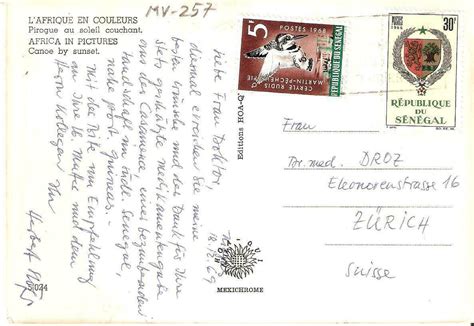 L'AFRIQUE EN COULEURS
Pirogue au soleil couchant.
AFRICA IN PICTURES
Canoe by sunset.
MV-257
5F
POSTES 1968
CERYLE RUDIS
MARTIN-PÊCHEUR PIE
REPUBLIQUE DU SENEGAL
30F
1966
RÉPUBLIQUE
DU
SÉNÉGAL
Liebe Frau Doktor,
diesmal erreichen Sie meine
besten Wünsche mit dem Dank für Ihre
stets geschätzte
aus der Casamance, einer bezaubernden
Landschaft im südl. Senegal,
nahe port. Guineas.
Mit der Bitte um Empfehlung
an Ihre Mutter und dem
Herrn Kollegen Ihr
Herbert
69
Editions HOA-QUI
MEXICHROME
5024
Frau
Dr. med. DROZ
Eleonorenstrasse 16
ZÜRICH
Suisse